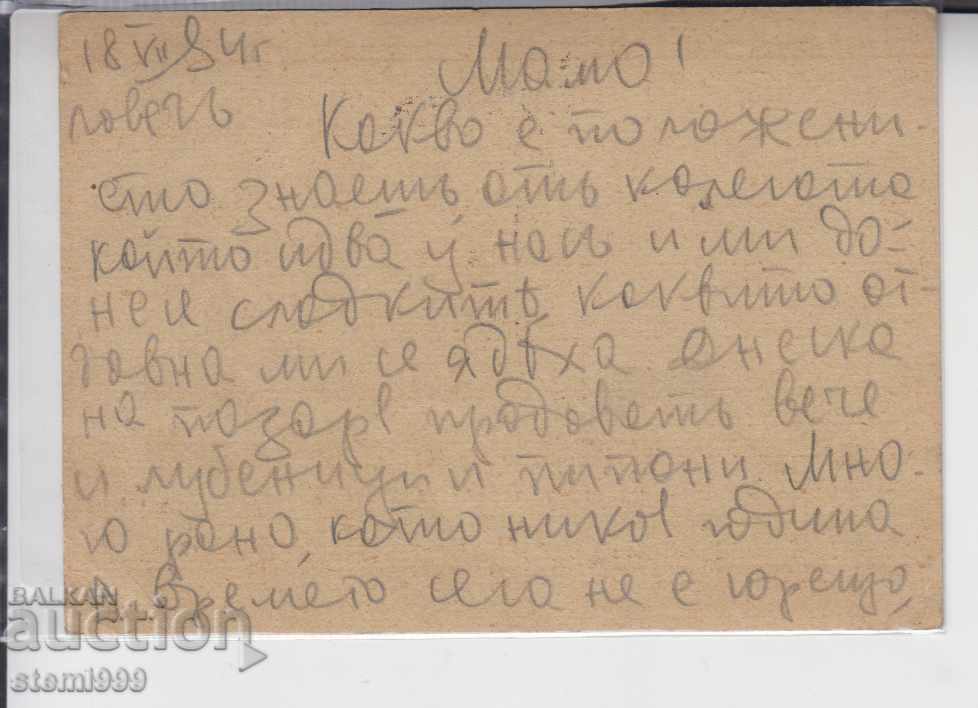 18 VII 34г
Мамо!
Ловечъ
Какво е положени-
ето знаешъ отъ колегата
който идва у насъ и ми до-
несе сладкитѣ каквито от-
давна ми се ядѣха Днеска
на пазар продаватъ вече
и лубеници и пипони. Мно-
го рано, като никоя година
Времето сега не е горещо,
BALKAN
auction
stemi999